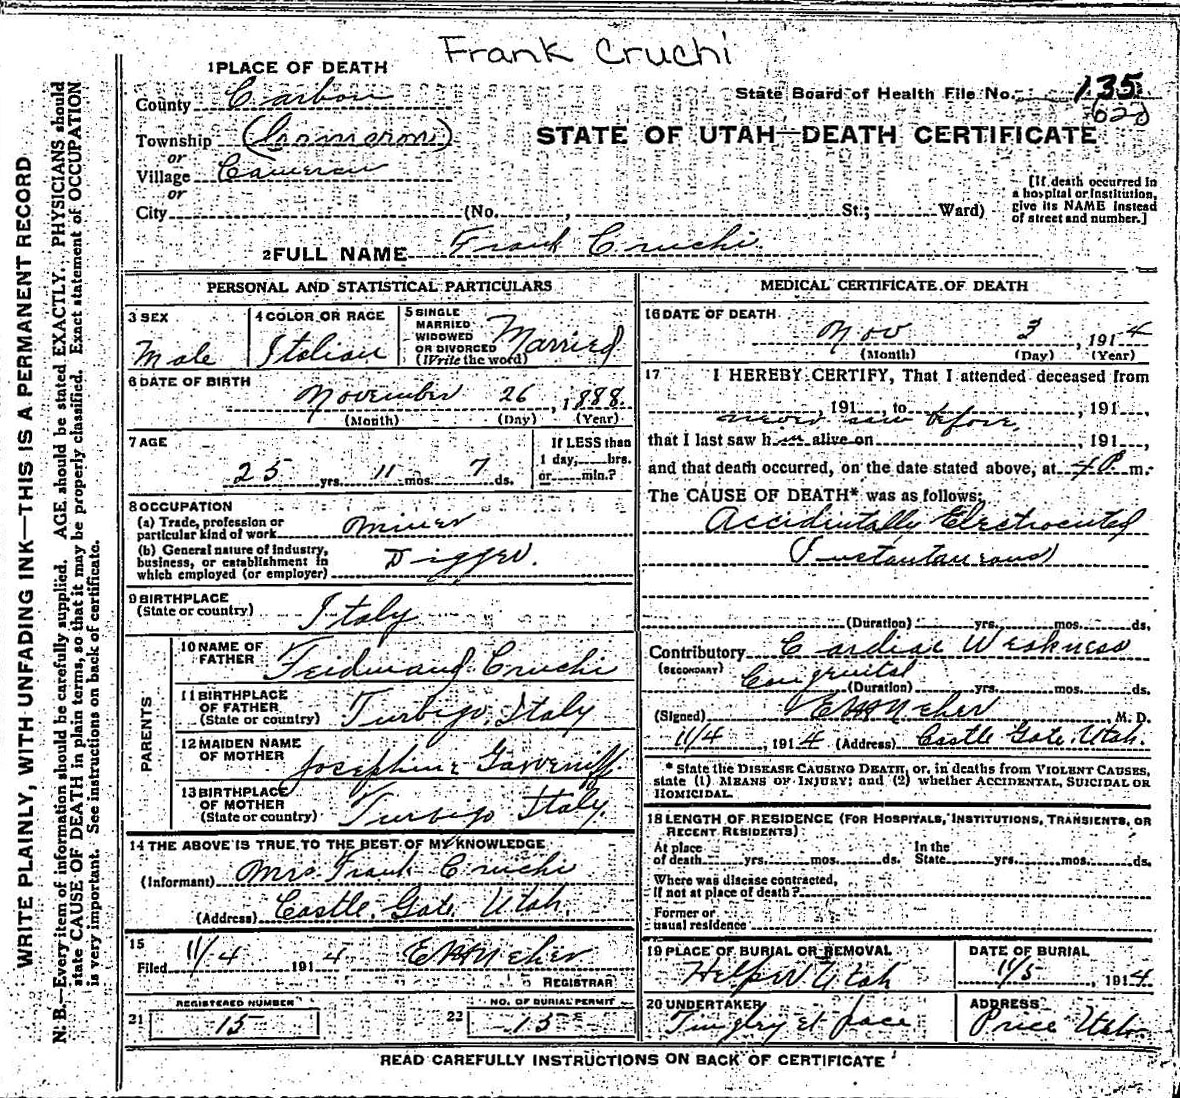 Frank Cruchi
1 PLACE OF DEATH
County Carbon
State Board of Health File No. 135
620
Township (Cameron)
STATE OF UTAH—DEATH CERTIFICATE
or
Village Cameron
or
City (No. , St.; Ward)
[If death occurred in
a hospital or institution,
give its NAME instead
of street and number.]
2 FULL NAME Frank Cruchi
PERSONAL AND STATISTICAL PARTICULARS
3 SEX
Male
4 COLOR OR RACE
Italian
5 SINGLE
MARRIED
WIDOWED
OR DIVORCED
(Write the word)
Married
6 DATE OF BIRTH
November 26, 1888
(Month) (Day) (Year)
7 AGE
25 yrs. 11 mos. 7 ds.
If LESS than
1 day, hrs.
or min.?
8 OCCUPATION
(a) Trade, profession or
particular kind of work Miner
(b) General nature of industry,
business, or establishment in
which employed (or employer) Digger.
9 BIRTHPLACE
(State or country) Italy
PARENTS
10 NAME OF
FATHER Ferdinand Cruchi
11 BIRTHPLACE
OF FATHER
(State or country) Turbigo, Italy
12 MAIDEN NAME
OF MOTHER Josephine
13 BIRTHPLACE
OF MOTHER
(State or country) Turbigo Italy.
14 THE ABOVE IS TRUE TO THE BEST OF MY KNOWLEDGE
(Informant) Mrs. Frank Cruchi
(Address) Castle Gate, Utah.
15
Filed 11/4 1914 E H Neher
REGISTRAR
21 REGISTERED NUMBER
15
22 NO. OF BURIAL PERMIT
15
MEDICAL CERTIFICATE OF DEATH
16 DATE OF DEATH
Nov 3, 1914
(Month) (Day) (Year)
17 I HEREBY CERTIFY, That I attended deceased from
, 191 , to , 191 ,
never saw before,
that I last saw him alive on , 191 ,
and that death occurred, on the date stated above, at 4 P. m.
The CAUSE OF DEATH* was as follows:
Accidentally Electrocuted
(Instantaneous)
(Duration) yrs. mos. ds.
Contributory Cardiac Weakness
(SECONDARY) Congenital
(Duration) yrs. mos. ds.
(Signed) E H Neher, M. D.
11/4, 1914 (Address) Castle Gate, Utah.
* State the DISEASE CAUSING DEATH, or, in deaths from VIOLENT CAUSES,
state (1) MEANS OF INJURY; and (2) whether ACCIDENTAL, SUICIDAL OR
HOMICIDAL.
18 LENGTH OF RESIDENCE (FOR HOSPITALS, INSTITUTIONS, TRANSIENTS, OR
RECENT RESIDENTS)
At place
of death yrs. mos. ds.
In the
State yrs. mos. ds.
Where was disease contracted,
if not at place of death?
Former or
usual residence
19 PLACE OF BURIAL OR REMOVAL
Helper Utah
DATE OF BURIAL
11/5, 1914
20 UNDERTAKER
Tingley et Pace
ADDRESS
Price Utah
READ CAREFULLY INSTRUCTIONS ON BACK OF CERTIFICATE
WRITE PLAINLY, WITH UNFADING INK—THIS IS A PERMANENT RECORD
N. B.—Every item of information should be carefully supplied. AGE should be stated EXACTLY. PHYSICIANS should
state CAUSE OF DEATH in plain terms, so that it may be properly classified. Exact statement of OCCUPATION
is very important. See instructions on back of certificate.